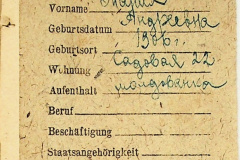 Vorname Мария
Андреевна
Geburtsdatum 1906 г.
Geburtsort
Wohnung Садовая 22
Aufenthalt молдованка
Beruf
Beschäftigung
Staatsangehörigkeit